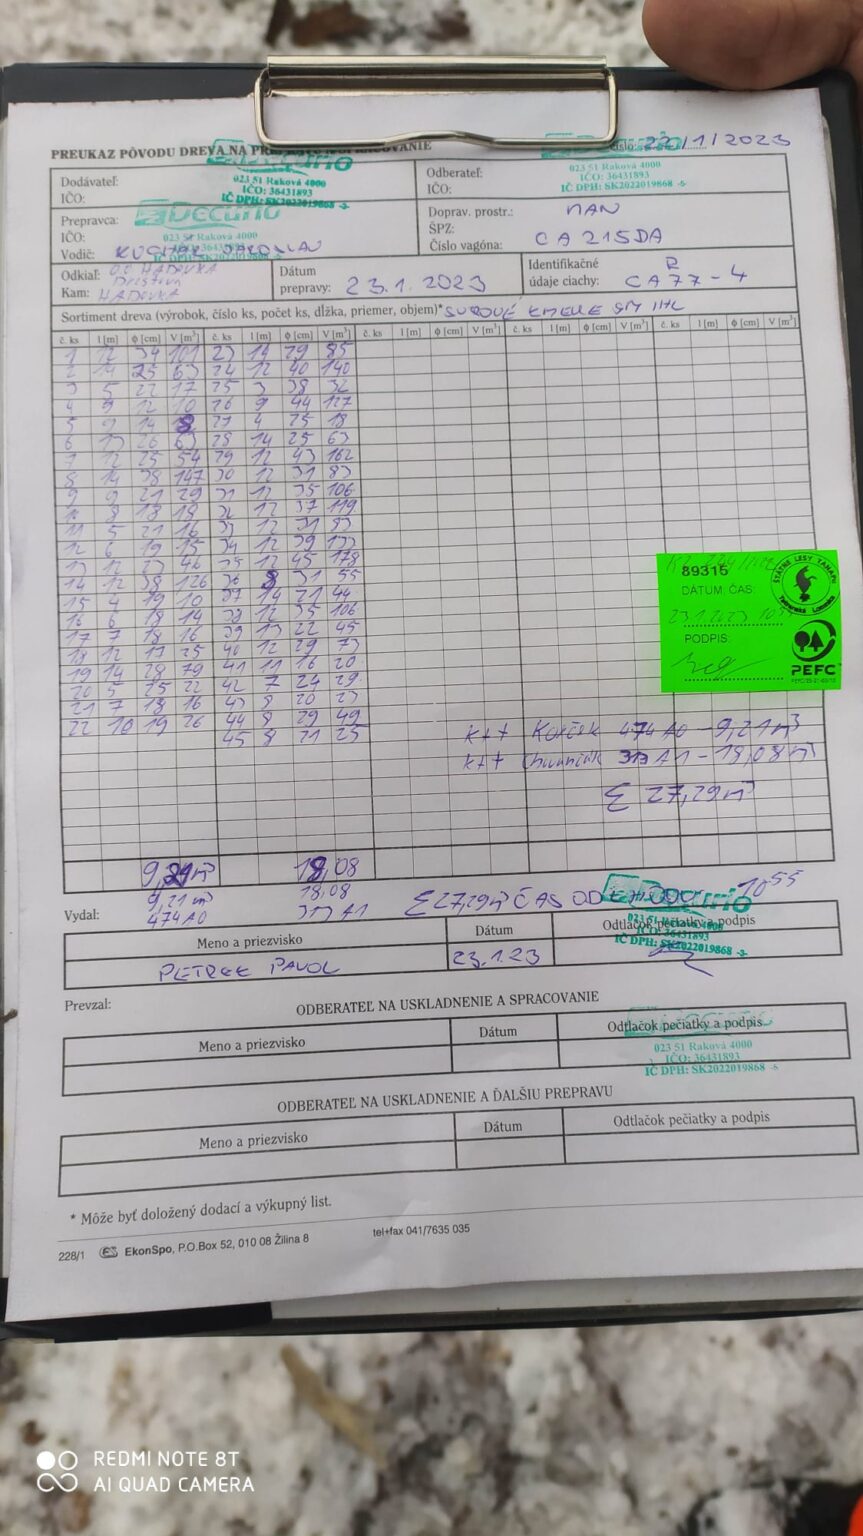 PREUKAZ PÔVODU DREVA NA
číslo: 22/1/2023
Dodávateľ:
IČO:
023 51 Raková 4000
IČO: 36431893
IČ DPH: SK2022019868 -3-
Odberateľ:
IČO:
023 51 Raková 4000
IČO: 36431893
IČ DPH: SK2022019868 -3-
Prepravca:
IČO:
Vodič:
Decurio
023 51 Raková 4000
Doprav. prostr.: MAN
ŠPZ:
Číslo vagóna: CA215DA
Odkiaľ: HADOVKA
Kam: HADOVKA
Dátum
prepravy: 23.1.2023
Identifikačné R
údaje ciachy: CA77-4
Sortiment dreva (výrobok, číslo ks, počet ks, dĺžka, priemer, objem)* SUROVÉ KMENE SM IHL
č. ks l [m] ϕ [cm] V [m³] č. ks l [m] ϕ [cm] V [m³] č. ks l [m] ϕ [cm] V [m³] č. ks l [m] ϕ [cm] V [m³] č. ks l [m] ϕ [cm] V [m³]
1 12 34 101 23 14 29 85
2 14 25 63 24 12 40 140
3 5 22 17 25 3 38 32
4 9 12 10 26 9 44 127
5 9 14 8 27 4 25 18
6 13 26 63 28 14 25 63
7 12 25 54 29 12 43 162
8 14 38 147 30 12 31 83
9 9 21 29 31 12 35 106
10 8 18 18 32 12 37 119
11 5 21 16 33 12 31 83
12 6 19 15 34 12 39 133
13 12 23 46 35 12 45 178
14 12 38 126 36 8 31 55
15 4 19 10 37 14 21 44
16 6 18 14 38 12 35 106
17 7 18 16 39 13 22 45
18 12 17 25 40 12 29 73
19 14 28 79 41 11 16 20
20 5 25 22 42 7 24 29
21 7 18 16 43 8 20 23
22 10 19 26 44 8 29 49
45 8 21 25
89315
DÁTUM, ČAS:
23.1.2023
PODPIS:
ŠTÁTNE LESY TANAPu
Tatranská Lomnica
PEFC
474A0 - 9,21 m³
A1 - 18,08 m³
Σ 27,29 m³
9,21 m³ 18,08
9,21 m³ 18,08 Σ 27,29 m³ ČAS ODCHODU 10⁵⁵
474A0 A1
Vydal:
Meno a priezvisko Dátum Odtlačok pečiatky a podpis
PETREK PAVOL 23.1.23
Decurio
023 51 Raková 4000
IČO: 36431893
IČ DPH: SK2022019868 -3-
Prevzal:
ODBERATEĽ NA USKLADNENIE A SPRACOVANIE
Meno a priezvisko Dátum Odtlačok pečiatky a podpis
023 51 Raková 4000
IČO: 36431893
IČ DPH: SK2022019868 -3-
ODBERATEĽ NA USKLADNENIE A ĎALŠIU PREPRAVU
Meno a priezvisko Dátum Odtlačok pečiatky a podpis
* Môže byť doložený dodací a výkupný list.
228/1 EkonSpo, P.O.Box 52, 010 08 Žilina 8 tel+fax 041/7635 035
REDMI NOTE 8T
AI QUAD CAMERA